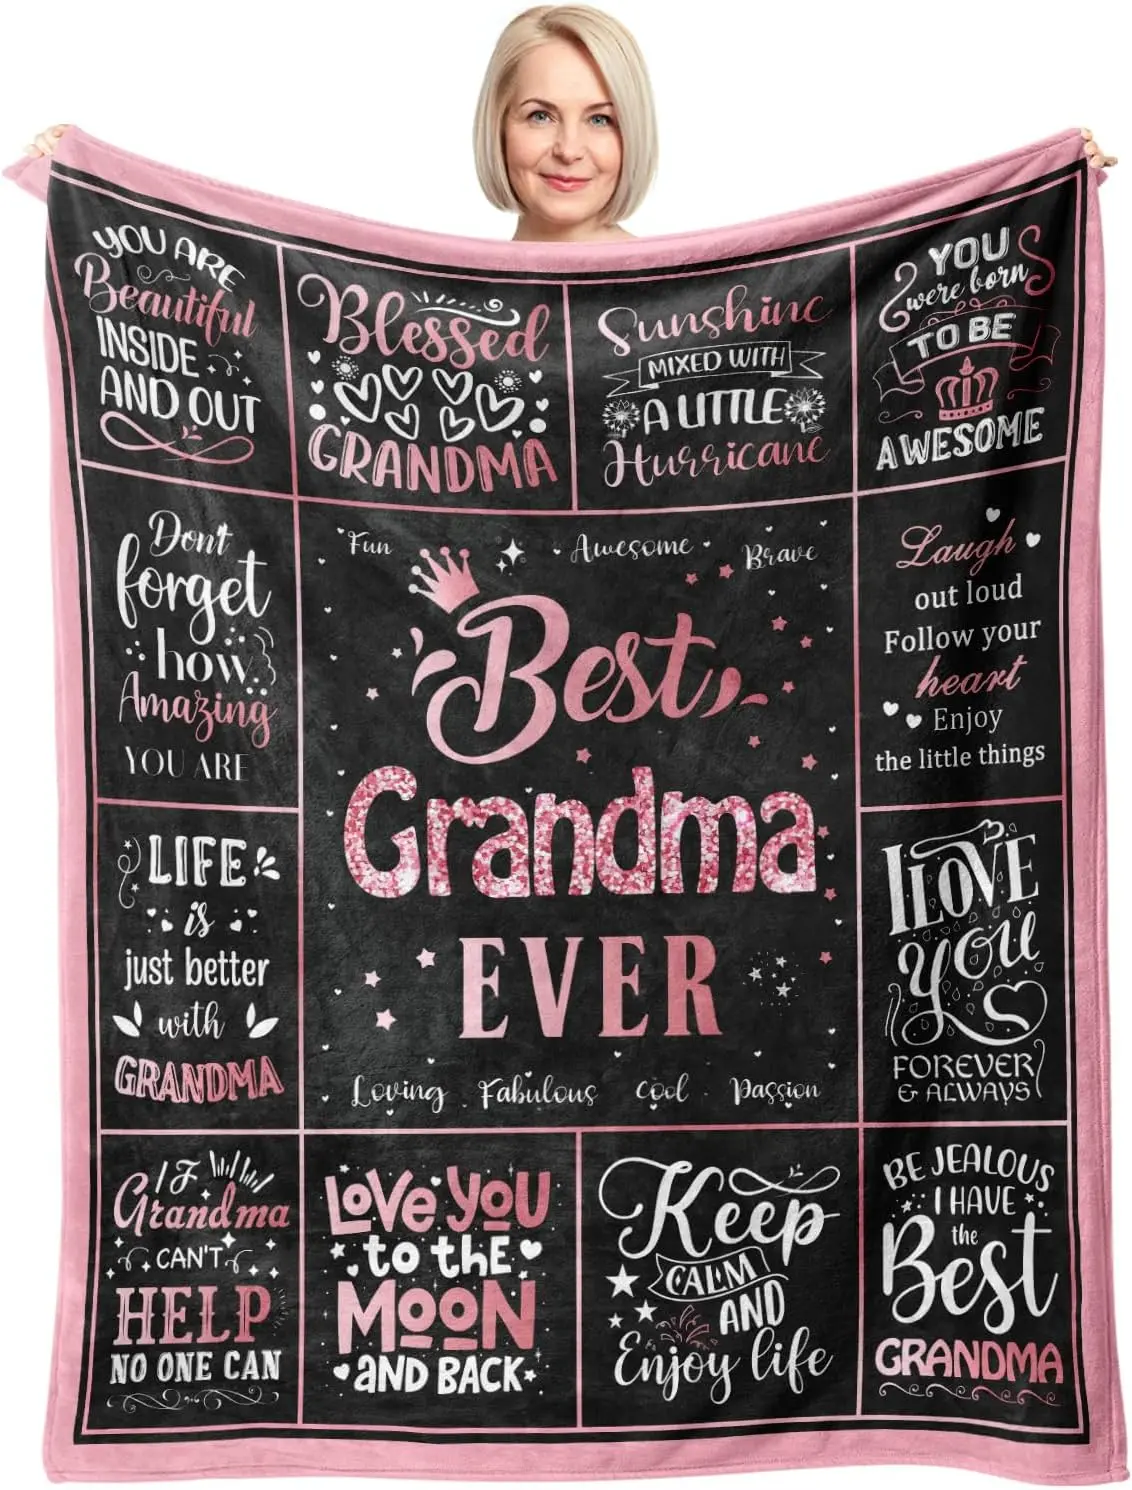 YOU ARE
Beautiful
INSIDE
AND OUT
Blessed
GRANDMA
Sunshine
MIXED WITH
A LITTLE
Hurricane
YOU
were born
TO BE
AWESOME
Don't
forget
how
Amazing
YOU ARE
Fun
Awesome
Brave
Best
Grandma
EVER
Loving Fabulous Cool Passion
Laugh
out loud
Follow your
heart
Enjoy
the little things
LIFE
is
just better
with
GRANDMA
I LOVE
You
FOREVER
& ALWAYS
IF
Grandma
CAN'T
HELP
NO ONE CAN
Love You
to the
MOON
AND BACK
Keep
CALM
AND
Enjoy life
BE JEALOUS
I HAVE
the
Best
GRANDMA